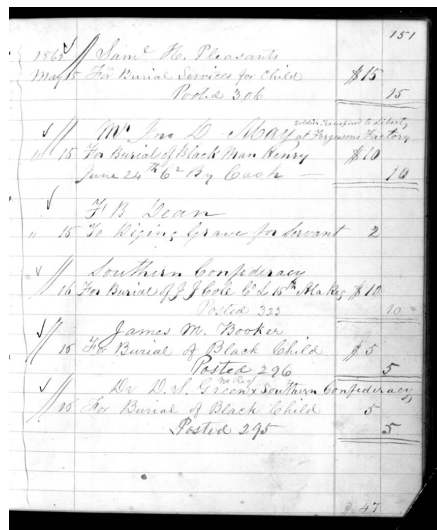 151
Saml H. Pleasants
May 15 For Burial Services for Child $15
Posted 306 15
Mr Jno D. May at Fergusons Factory
" 15 For Burial of Black Man Henry $10
June 24th 62 By Cash — 10
F B Dean
" 15 To Diging Grave for Servant 2
Southern Confideracy
16 For Burial of J J Cole Co L 15th Ala Reg $10
Posted 323 10
James M. Booker
15 For Burial of Black Child $5
Posted 296 5
Dr D. S. Green Southern Confideracy
15 For Burial of Black Child 5
Posted 295 5
$47